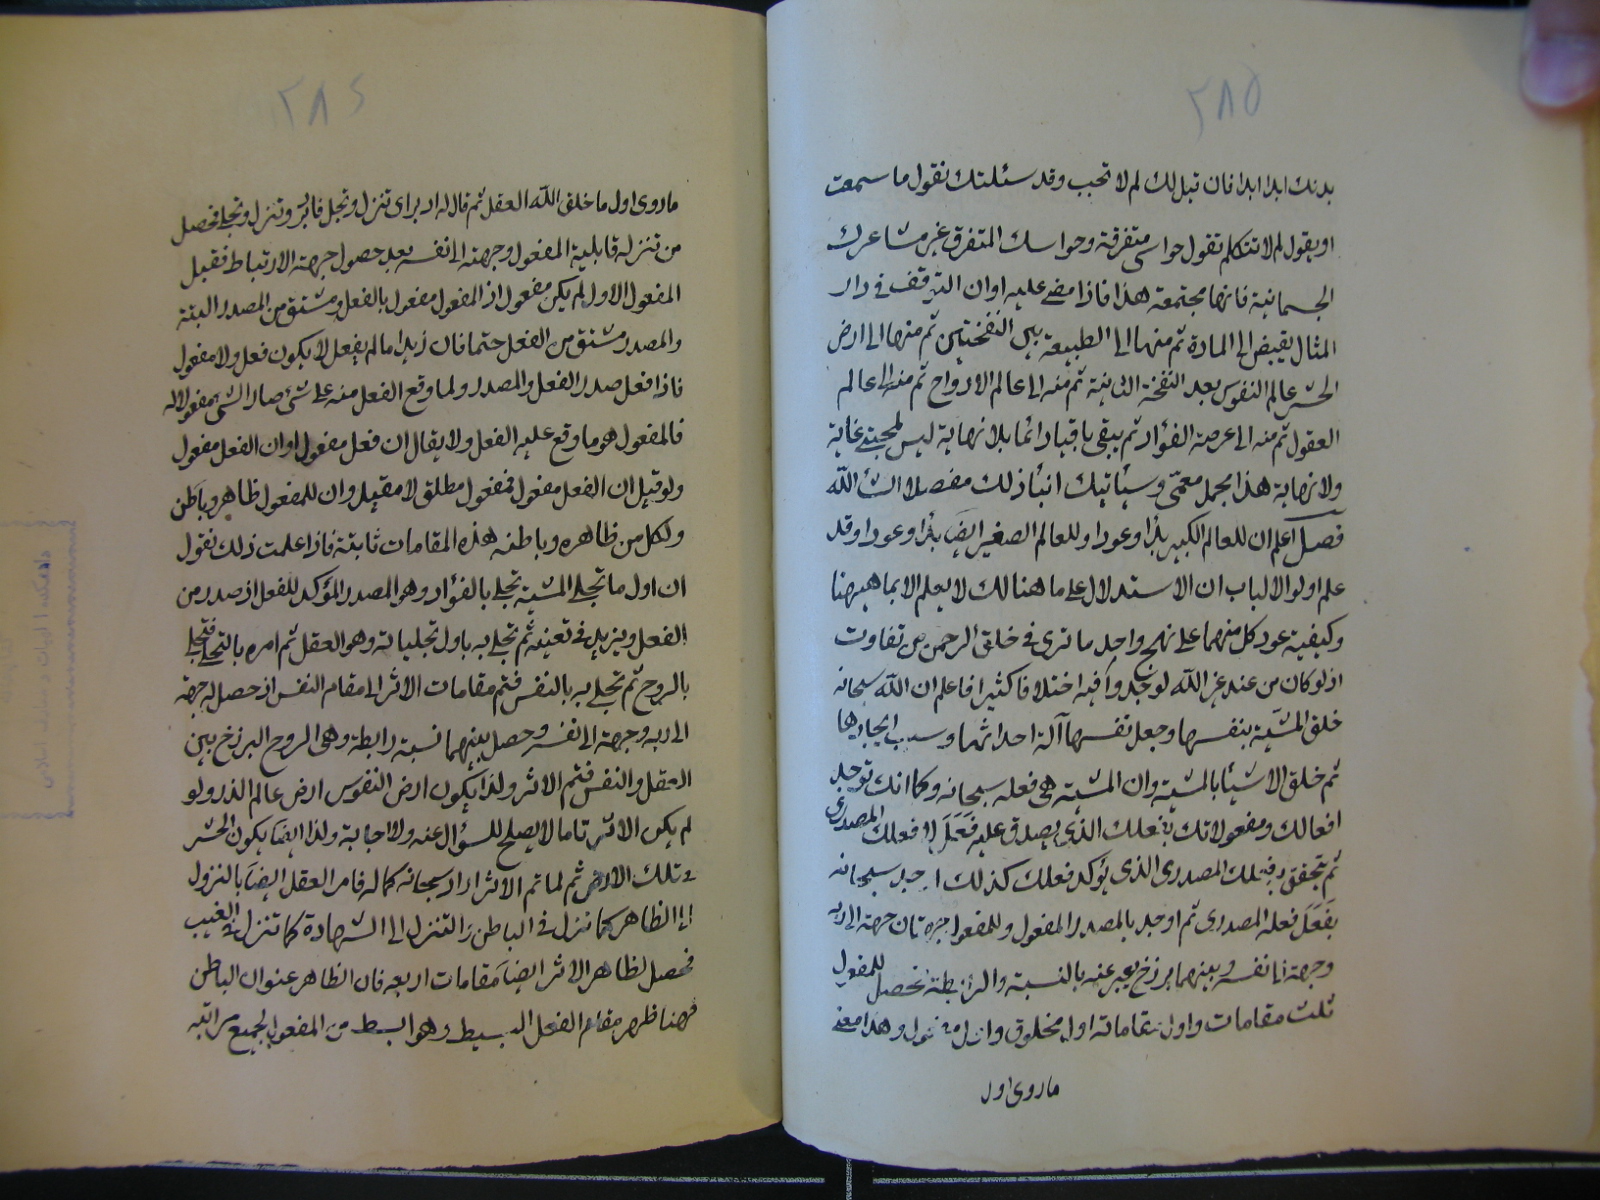 ٢٨٥
بدنك ابدا ابدا فان قيل لك لم لا تجب وقد سئلتك تقول ما سمعت
او يقول لم لا تتكلم تقول حواسى متفرقة وحواسك المتفرق غير مشاعرك
الجسمانية فانها مجتمعة هذا فاذا مضى عليه اوان التوقف فى دار
المثال يقبض الى المادة ثم منها الى الطبيعة بين النفختين ثم منها الى ارض
الحشر عالم النفوس بعد النفخة الثانية ثم منه الى عالم الارواح ثم منه الى عالم
العقول ثم منه الى عرصة الفؤاد ثم يبقى باقيا دائما بلا نهاية ليس لمحبتى غاية
ولا نهاية هذا مجمل معمّى وسيأتيك انبأ ذلك مفصلا انشاء الله
فصل اعلم ان للعالم الكبير بدأ وعودا وللعالم الصغير ايضا بدأ وعودا وقد
علم اولوا الالباب ان الاستدلال على ما هنالك لا يعلم الا بما هيهنا
وكيفية عود كل منهما على نهج واحد ما ترى فى خلق الرحمن من تفاوت
اذ لو كان من عند غير الله لوجدوا فيه اختلافا كثيرا فاعلم ان الله سبحانه
خلق المشية بنفسها وجعل نفسها آلة احداثها وسبب ايجادها
ثم خلق الاشيأ بالمشية وان المشية هى فعله سبحانه وكما انك توجد
افعالك ومفعولاتك بفعلك الذى يصدق عليه فَعَلَ لا فعلك المصدرى
ثم تحقق بفعلك المصدرى الذى يؤكد فعلك كذلك اوجد سبحانه
بفَعَلَ فعله المصدرى ثم اوجد بالمصدر المفعول وللمفعول جهتان جهة الى ربه
وجهة الى نفسه وبينهما برزخ يعبر عنه بالنسبة والرابطة فحصل للمفعول
ثلث مقامات واول مقاماته اول مخلوق واول مفعول وهذا معنى
ما روى اول
٢٨٤
ما روى اول ما خلق الله العقل ثم قال له ادبر اى تنزل وتجل فادبر وتنزل وتجلى فحصل
من تنزله قابلية المفعول وجهته الى نفسه بعد حصول جهة الارتباط فقبل
المفعول الاول لم يكن مفعول اذ المفعول مفعول بالفعل ومشتق من المصدر البتة
والمصدر مشتق من الفعل حتما فان زيدا ما لم يفعل لا يكون فعل ولا مفعول
فاذا فعل صدر الفعل والمصدر ولما وقع الفعل منه على شئ صار الشئ مفعولا له
فالمفعول هو ما وقع عليه الفعل ولا يقال ان فعل مفعول او ان الفعل مفعول
ولو قيل ان الفعل مفعول فمفعول مطلق لا مقيد وان للمفعول ظاهر وباطن
ولكل من ظاهره وباطنه هذه المقامات ثابتة فاذا علمت ذلك نقول
ان اول ما تجلى المشية تجلى بالفؤاد وهو المصدر المؤكد للفعل اذ صدر من
الفعل ويزيد فى تعينه ثم تجلى به باول تجلياته وهو العقل ثم امره بالتجلى فتجلى
بالروح ثم تجلى به بالنفس فتم مقامات الاثر الى مقام النفس اذ حصل له جهة
الى ربه وجهة الى نفسه وحصل بينهما نسبة رابطة وهى الروح البرزخ بين
العقل والنفس فتم الاثر ولذا يكون ارض النفوس ارض عالم الذر ولو
لم يكن الاثر تاما لا يصلح للسؤال عنه ولا اجابة ولذا ايضا يكون الحشر
فى تلك الارض ثم لما تم الاثر اراد سبحانه كماله فامر العقل ايضا بالنزول
الى الظاهر كما تنزل فى الباطن والتنزل الى الشهادة كما تنزل فى الغيب
فحصل لظاهر الاثر ايضا مقامات اربعه فان الظاهر عنوان الباطن
فهنا ظهر مقام الفعل البسيط وهو ابسط من المفعول لجميع مراتبه